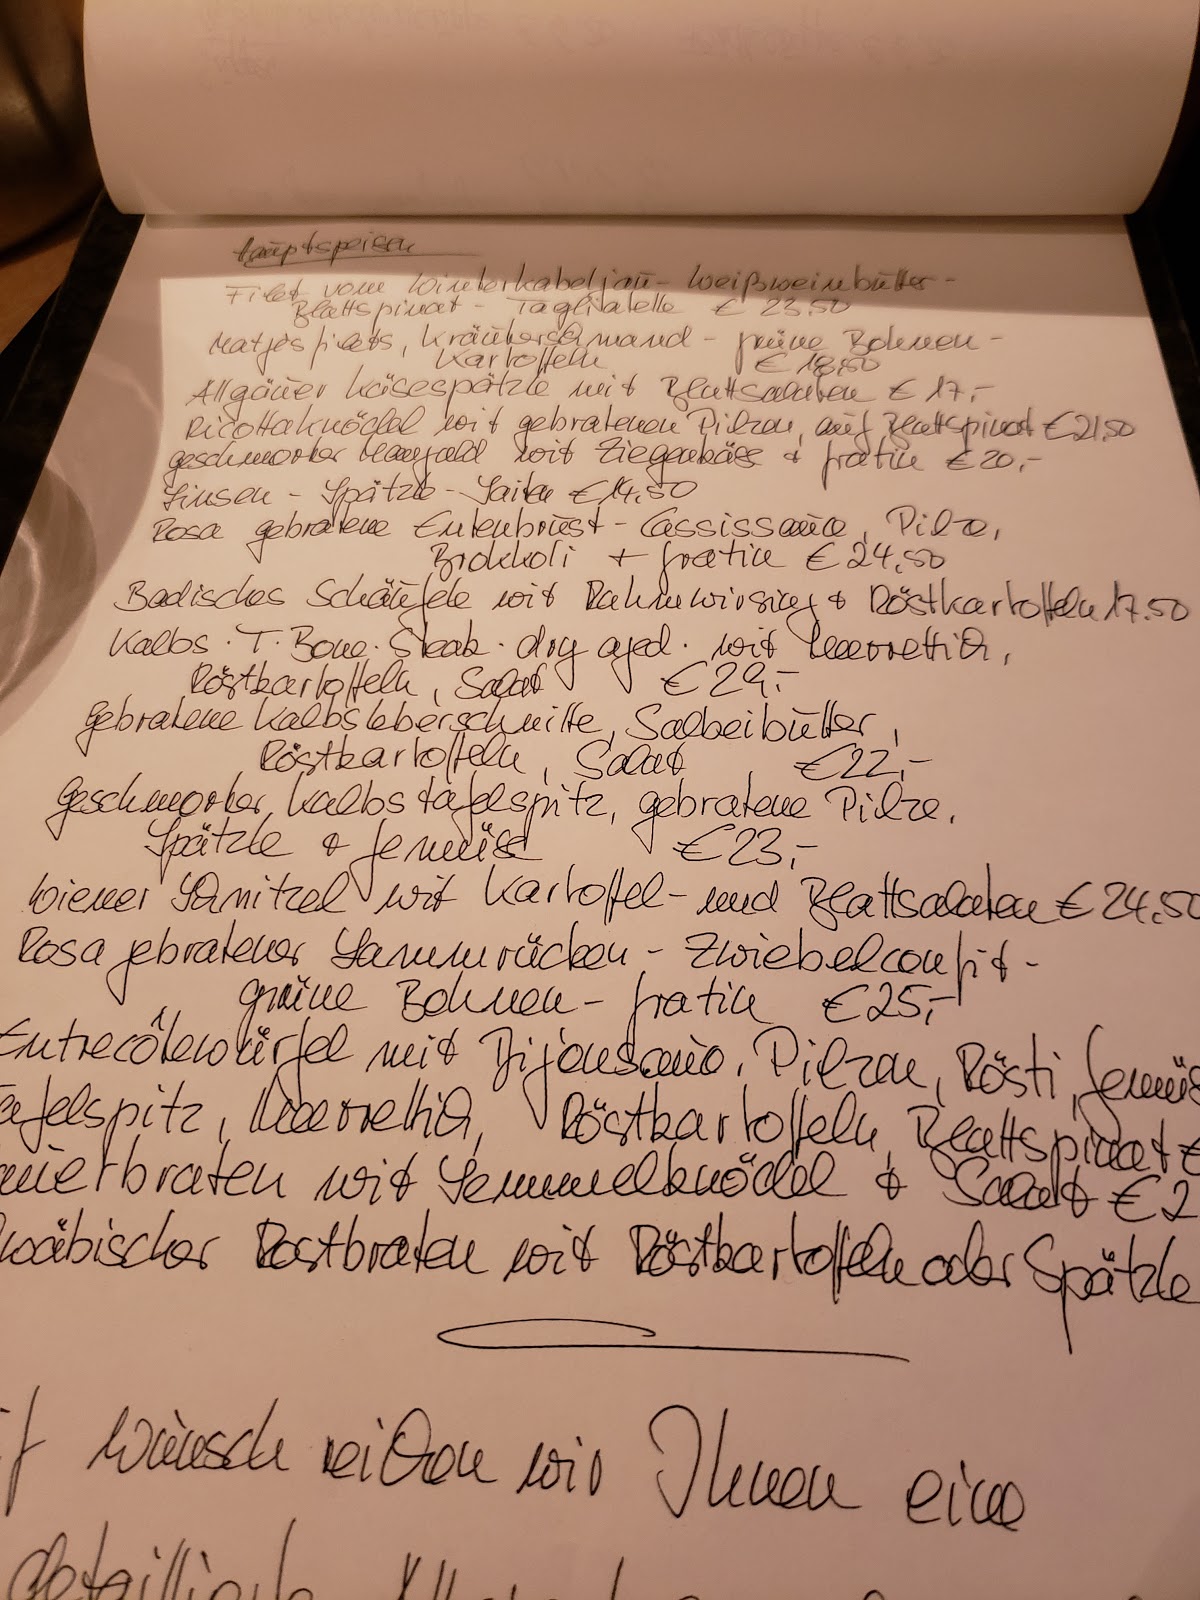 Hauptspeisen
Filet vom Winterkabeljau - Weißweinbutter -
Blattspinat - Tagliatelle € 23.50
Matjesfilets, Kräuterschmand - grüne Bohnen -
Kartoffeln € 18,50
Allgäuer Käsespätzle mit Blattsalaten € 17,-
Ricottaknödel mit gebratenen Pilzen, auf Blattspinat € 21.50
geschmorter Mangold mit Ziegenkäse & Gratin € 20,-
Linsen - Spätzle - Saiten € 14.50
Rosa gebratene Entenbrust - Cassissauce, Pilze,
Brokkoli + Gratin € 24.50
Badisches Schäufele mit Rahmwirsing & Röstkartoffeln 17.50
Kalbs-T-Bone-Steak-dry aged- mit Meerrettich,
Röstkartoffeln, Salat € 29,-
gebratene Kalbsleberschnitte, Salbeibutter,
Röstkartoffeln, Salat € 22,-
Geschmorter Kalbstafelspitz, gebratene Pilze,
Spätzle & Gemüse € 23,-
Wiener Schnitzel mit Kartoffel- und Blattsalaten € 24,50
Rosa gebratener Lammrücken - Zwiebelconfit -
grüne Bohnen - Gratin € 25,-
Entrecôtewürfel mit Dijonsauce, Pilzen, Rösti, Gemüs
afelspitz, Meerrettich, Röstkartoffeln, Blattspinat €
auerbraten mit Semmelknödel & Salat € 2
hwäbischer Rostbraten mit Röstkartoffeln oder Spätzle
f Wunsch reichen wir Ihnen eine
detaillierte